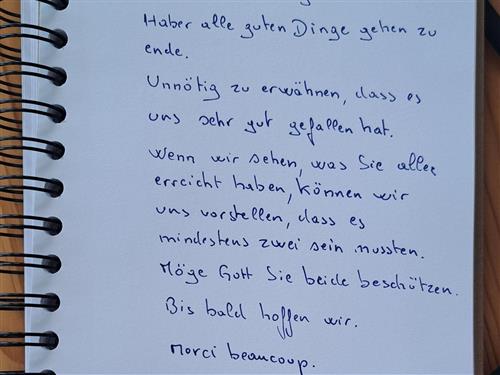 Haber alle guten Dinge gehen zu
ende.
Unnötig zu erwähnen, dass es
uns sehr gut gefallen hat.
Wenn wir sehen, was Sie alles
erreicht haben, können wir
uns vorstellen, dass es
mindestens zwei sein mussten.
Möge Gott Sie beide beschützen.
Bis bald hoffen wir.
Merci beaucoup.